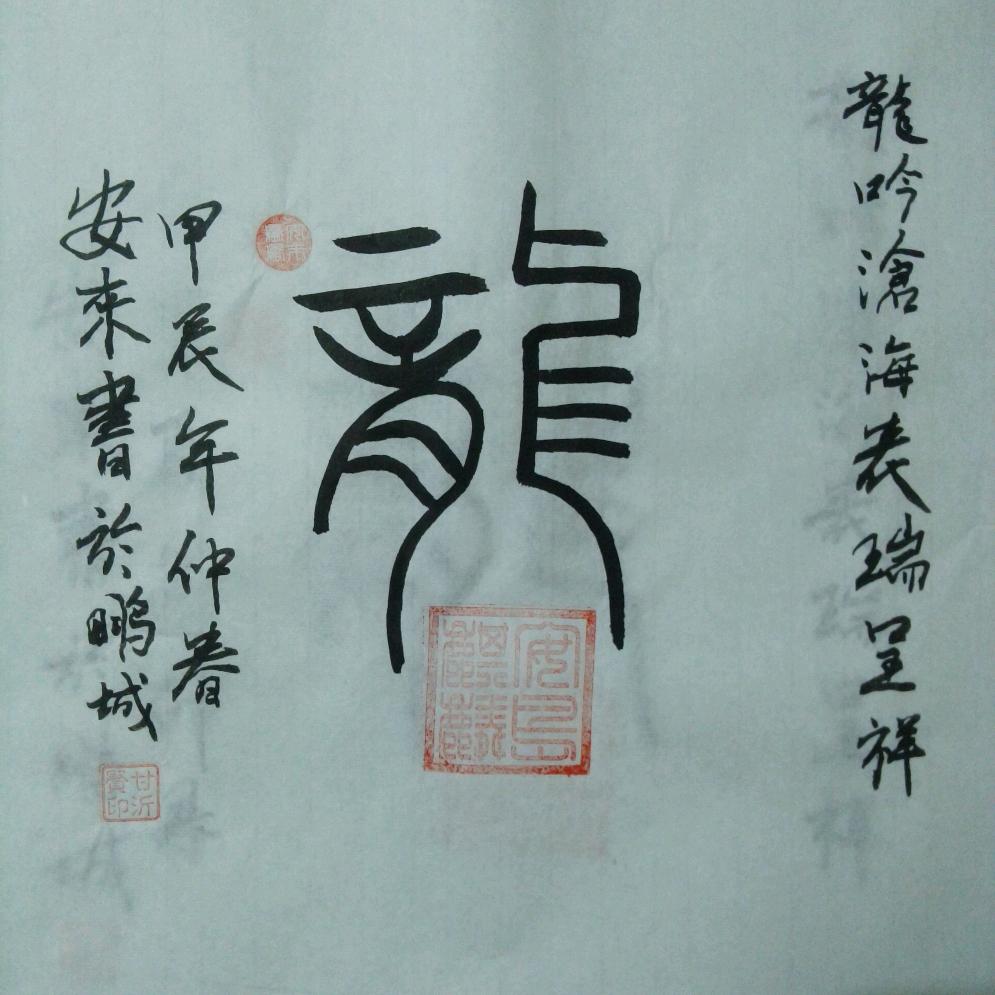 龍吟滄海表瑞呈祥
龍
甲辰年仲春
安來書於鵬城
甘沂賢印